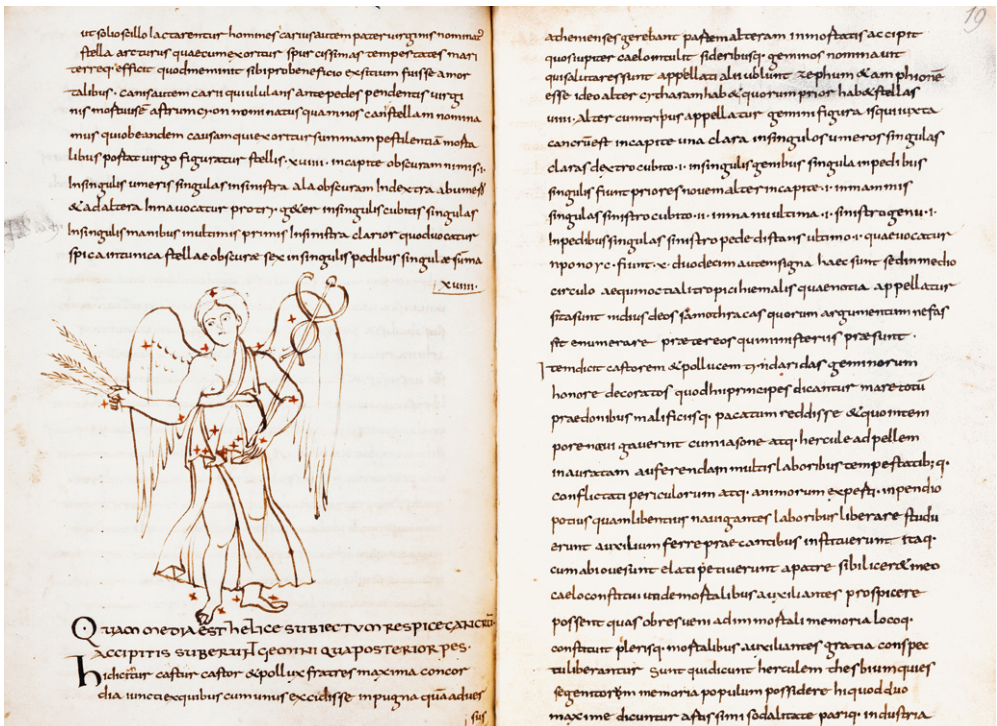 ut solio seillo lactarentur hominescariusautem pater virginis nominat
stella arcturus quaecumexortus spurcissimas tempestates mari
terreq; efficit quodmeminit sibiprobeneficio exsitium fuisse amor
talibus. canisautem carii quiululans antepedes pendentis virgi
nis mostuuse astrumcyon nominatus quamnos canstellam nomina
mus quiobeandem causamquiexoritur summam pestilentiam mosta
libus postat virgo figuratur stellis. xviiii. incapite obscuram nimis. i.
Insingulis umeris singulas insinistra ala obscuram Indextra abumes
& adaltera Innavocatur protry. g&er insingulis cubitis singulas
Insingulis manibus inultimis primis Insinistra clarior quoduocatur
spica intunica stellae obscuræ sex insingulis pedibus singulæ suma
xviiii.
Quam media est helice subiectum respice cancru
Accipitis suberunt gemini qua posterior pes.
hi dicitur castur castor & pollux fratres maxima concor
dia iuncti exquibus cum unus excidisse inpugna qua adues
sus
19
athenienses gerebant pastem alteram inmostatis accipit
quos iupiter caelo intulit sideribusq; geminos nominavit
qui salutares sunt appellati alii volunt zephum & amphione
esse ideo alter cytharam hab& quorum prior hab& stellas
viiii. alter cumtribus appellatur gemini figura is qui iuxta
cancru est incapite una clara. insingulos umeros singulas
claras dextro cubito. i. insingulis genibus singula inpedibus
singulis fiunt priores novem alter incapite. i. inmammis
singulas sinistro cubito. ii. inmanu ultima. i. sinistro genu. i.
Inpedibus singulas sinistro pede distans ultimo. i. quae vocatur
nponoyc. fiunt. x. duodecim autem signa haec sunt sed in medio
circulo aequinoctiali tropici hiemalis quae notia appellatur
sitasunt indius deos samothracas quorum argumentum nefas
sit enumerare præter eos qui ministeriis præsunt.
Item dicit castorem & pollucem tyndaridas geminorum
honore decoratos quod hi principes dicantur mare totu
praedonibus malificiisq; pacatum reddisse & quo in tem
pore naui gaverint cum iasone atq. hercule ad pellem
inauratam auferendam multis laboribus tempestatib; q.
conflictati periculorum atq. animorum expesti. inpendio
potius quam libentius navigantes laboribus liberare studu
erunt auxilium ferre prae cantibus instituerunt itaq.
cum abiovesunt elati petiverunt a patre sibi licer& in eo
caelo constitui unde mostalibus auxiliantes prospicere
possent quas obres ueni ad inmostali memoria locoq.
constituit plerisq. mostalibus auxiliantes gratia conspec
tu liberantur Sunt qui dicunt herculem thesbiumques
segenitorem memoria populum possidere hi quod duo
maxime dicuntur astissimi sodalitate pariq. industria